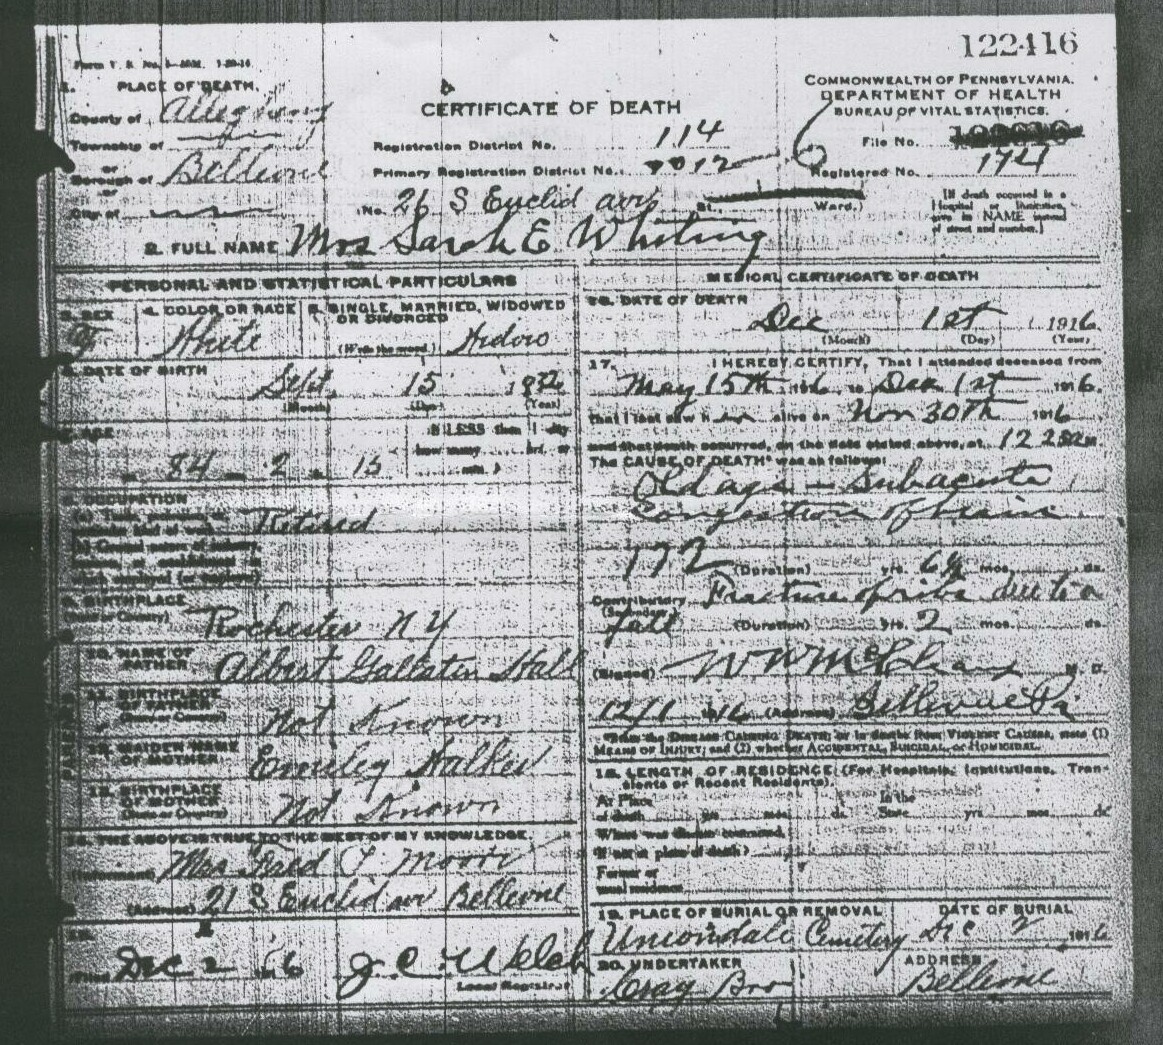 122416
Form V. S. No.
1. PLACE OF DEATH.
County of Allegheny
Township of
or
Borough of Bellevue
or
City of
CERTIFICATE OF DEATH
Registration District No. 114
Primary Registration District No.
No. 26 S Euclid ave St., Ward.)
COMMONWEALTH OF PENNSYLVANIA.
DEPARTMENT OF HEALTH
BUREAU OF VITAL STATISTICS.
File No.
Registered No. 174
[If death occurred in a
Hospital or Institution,
give its NAME instead
of street and number.]
2. FULL NAME Mrs Sarah E Whiting
PERSONAL AND STATISTICAL PARTICULARS
3. SEX F
4. COLOR OR RACE White
5. SINGLE, MARRIED, WIDOWED
OR DIVORCED
(Write the word.) Widow
6. DATE OF BIRTH
Sept. 15
(Month) (Day) (Year)
7. AGE
84 2 15
If LESS than 1 day
how many hrs. or
8. OCCUPATION
Retired
9. BIRTHPLACE
(State or Country)
Rochester NY
10. NAME OF
FATHER Albert Gallatin Hall
11. BIRTHPLACE
OF FATHER
(State or Country) Not Known
12. MAIDEN NAME
OF MOTHER
13. BIRTHPLACE
OF MOTHER
(State or Country) Not Known
14. THE ABOVE IS TRUE TO THE BEST OF MY KNOWLEDGE.
Moore
(Address) 21 S Euclid ave Bellevue
15.
Filed Dec 2 16 J. C. Welch
Local Registrar
MEDICAL CERTIFICATE OF DEATH
16. DATE OF DEATH
Dec 1st 1916
(Month) (Day) (Year)
17. I HEREBY CERTIFY, That I attended deceased from
May 15th 1916 to Dec 1st 1916.
that I last saw her alive on Nov 30th 1916
and that death occurred, on the date stated above, at 12
The CAUSE OF DEATH* was as follows:
Old age — Subacute
Congestion of brain
(Duration) yrs. mos. ds.
Contributory Fracture of ribs due to a
(Secondary)
fall (Duration) yrs. 2 mos. ds.
(Signed) M. D.
12/1 1916 (Address) Bellevue Pa
*State the DISEASE CAUSING DEATH; or in deaths from VIOLENT CAUSES, state (1)
MEANS OF INJURY; and (2) whether ACCIDENTAL, SUICIDAL, or HOMICIDAL.
18. LENGTH OF RESIDENCE (For Hospitals, Institutions, Tran-
sients or Recent Residents).
At Place In the
of death yrs. mos. ds. State yrs. mos. ds.
Where was disease contracted,
If not at place of death?
Former or
usual residence
19. PLACE OF BURIAL OR REMOVAL DATE OF BURIAL
Uniondale Cemetery Dec 2 1916
20. UNDERTAKER ADDRESS
Bro Bellevue